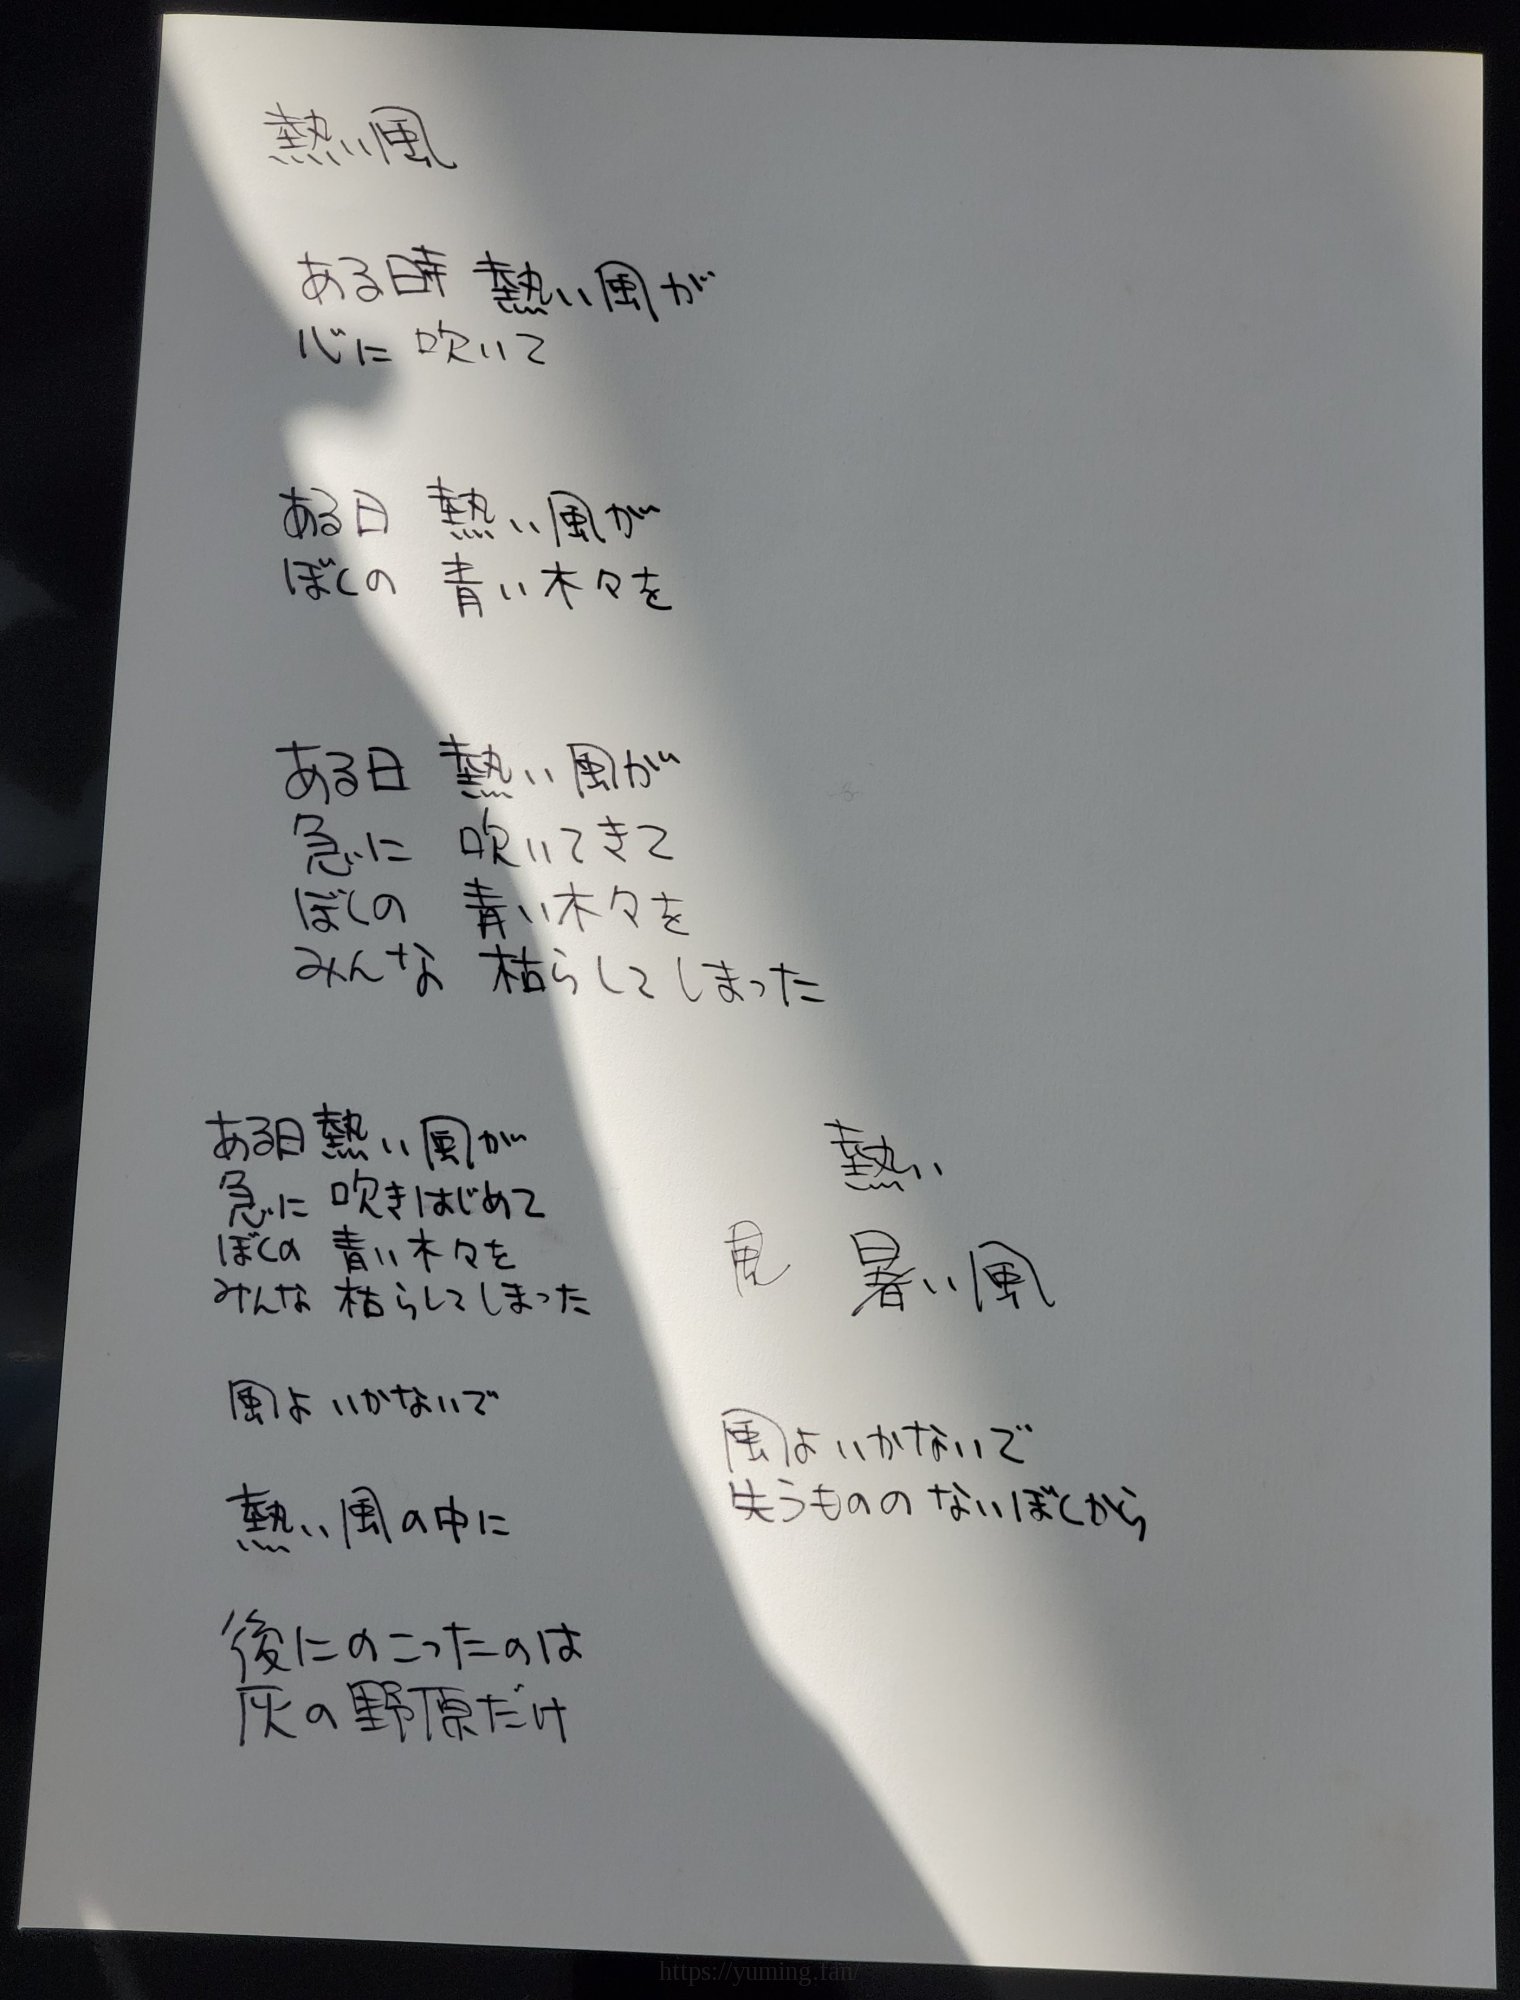 熱い風
ある時 熱い風が
心に 吹いて
ある日 熱い風が
ぼくの 青い木々を
ある日 熱い風が
急に 吹いてきて
ぼくの 青い木々を
みんな 枯らしてしまった
ある日 熱い風が
急に 吹きはじめて
ぼくの 青い木々を
みんな 枯らしてしまった
風よ いかないで
熱い風の中に
後にのこったのは
灰の野原だけ
熱い
風 暑い風
風よいかないで
失うもののないぼくから
https://yuming.fan/